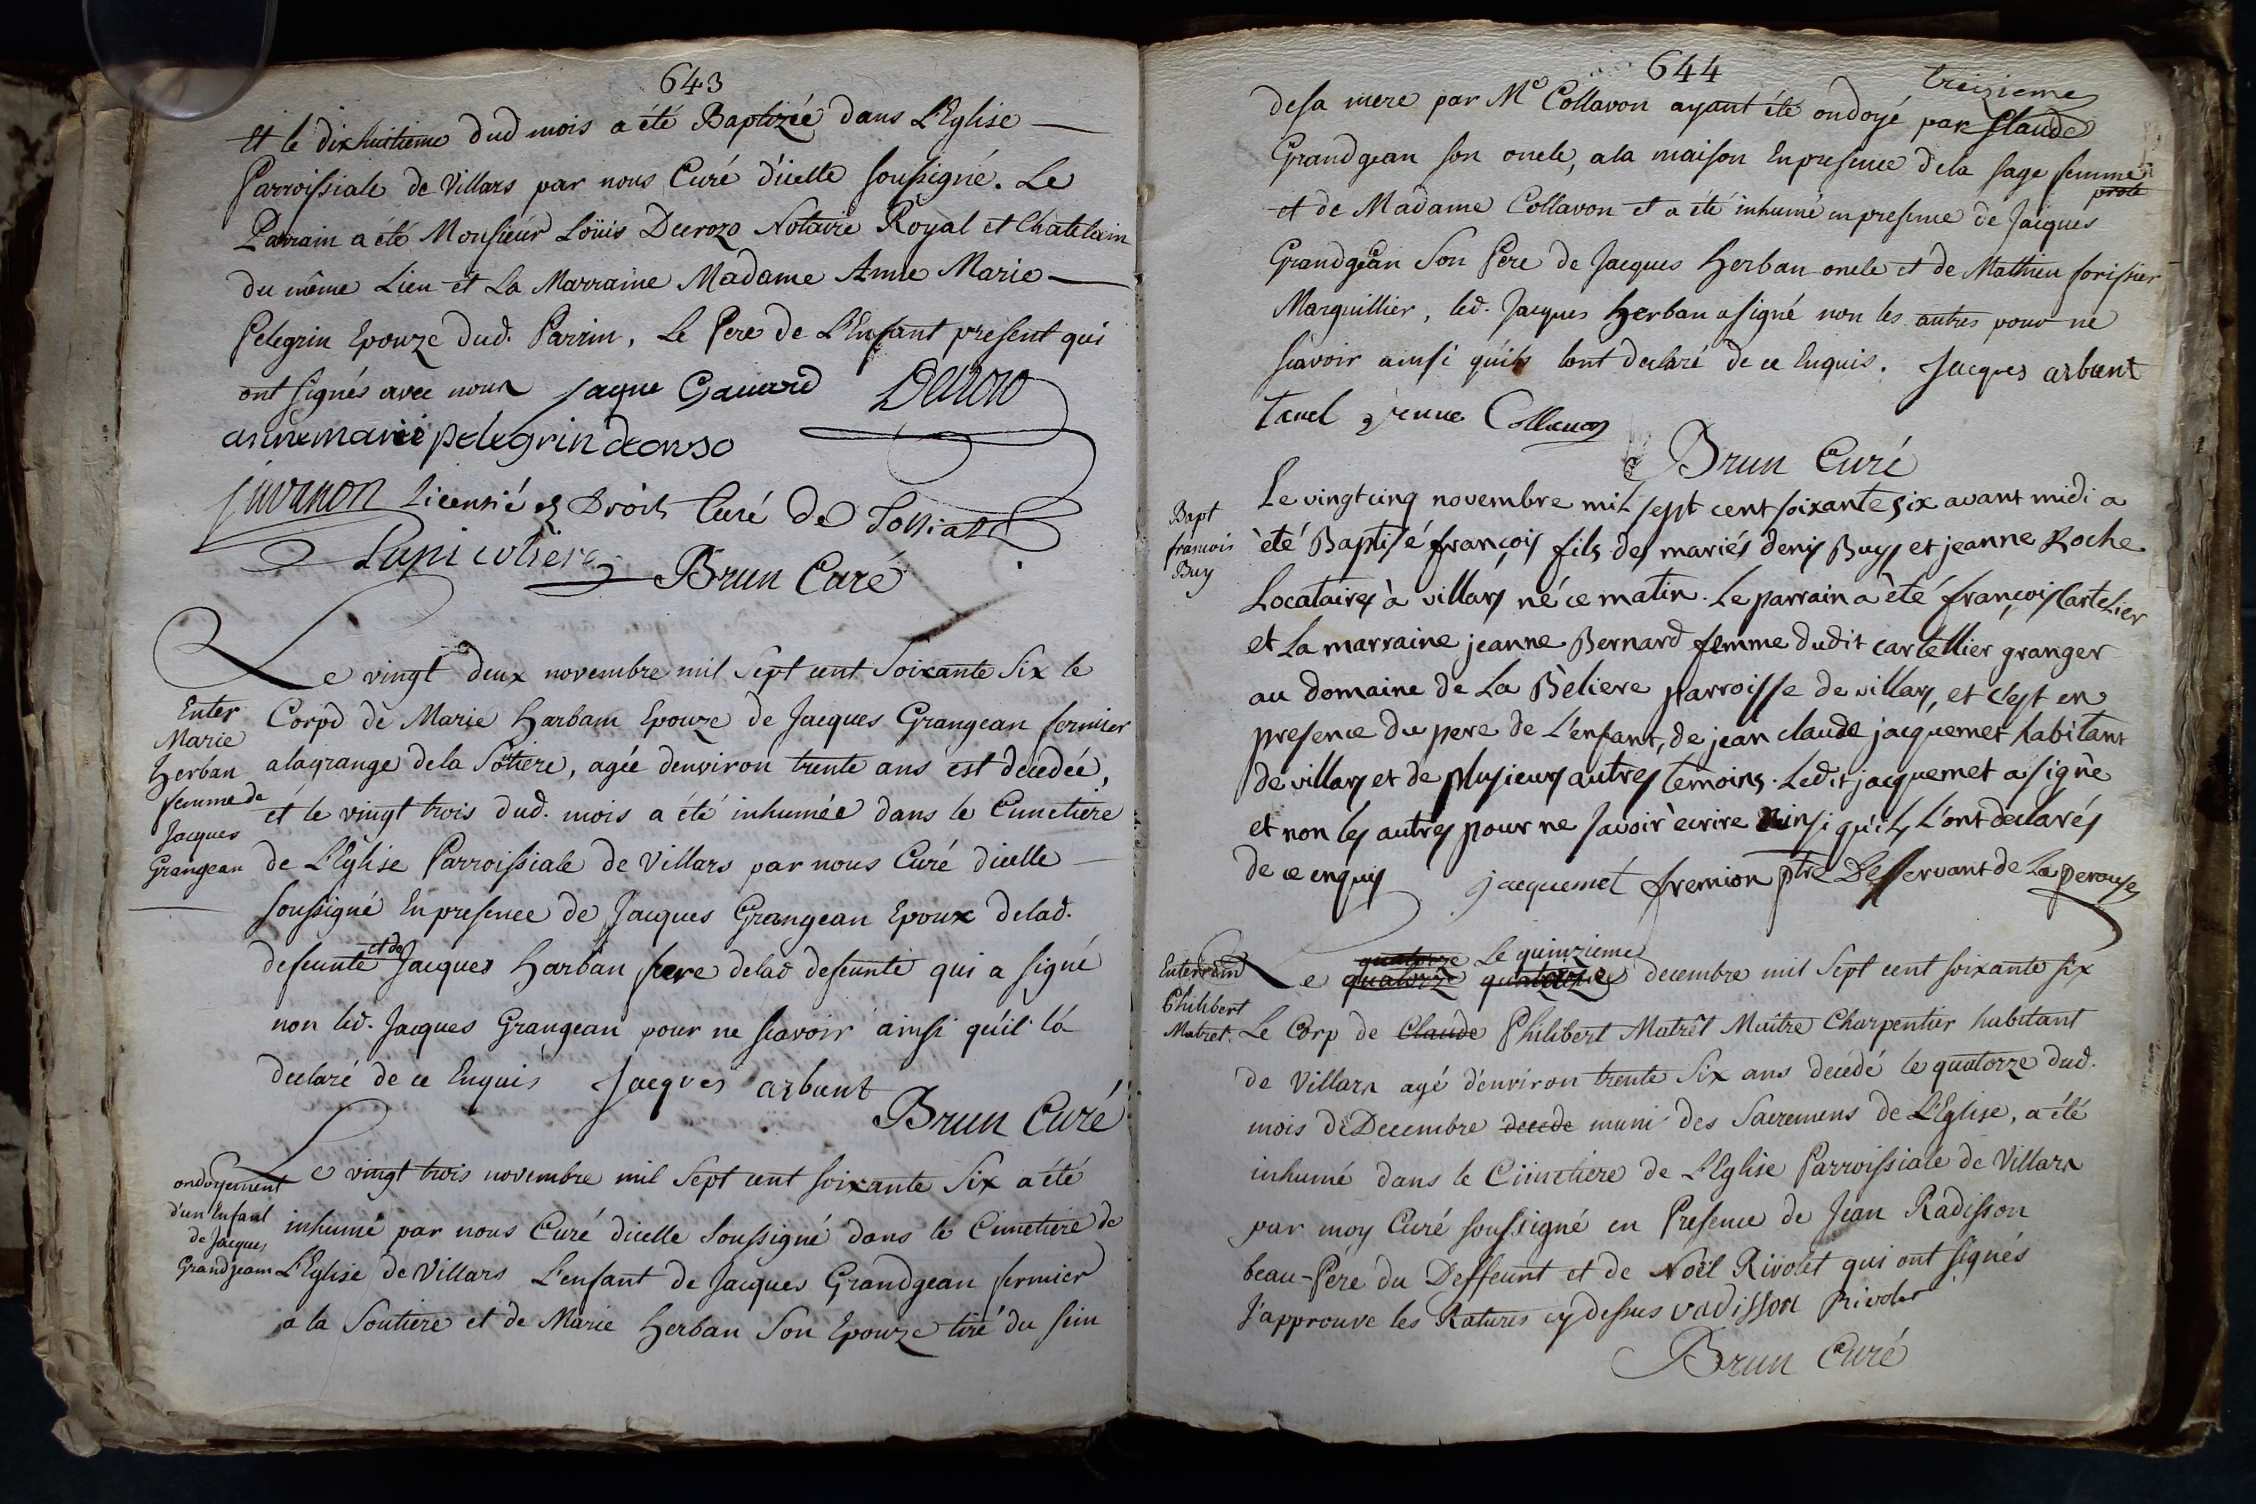 643
Et le dixhuitieme dud mois a été Baptizéé dans L'Eglise
Parroissiale de Villars par nous Curé d'icelle soussigné. Le
Parrain a été Monsieur Loüis Decrozo Notaire Royal et Chatelain
du même Lieu et La Marraine Madame Anne Marie
Pelegrin Epouze dud. Parrin, Le Pere de L'Enfant present qui
ont signés avec nous jaque Gauard Decrozo
anne marie pelegrin decroso
juvanon Licensié es Droits Curé de
Lupicotiere Brun Curé
Le vingt deux novembre mil Sept cent Soixante Six le
Enter
Marie
Herban
femme de
Jacques
Grangean
Corps de Marie Harbam Epouze de Jacques Grangean fermier
alagrange dela Sotiere, agéé denviron trente ans est decedéé,
et le vingt trois dud. mois a été inhuméé dans le Cimetiere
de L'Eglise Parroissiale de Villars par nous Curé dicelle
soussigné En presence de Jacques Grangean Epoux delad.
defeunte et de Jacques Harban frere delad defeunte qui a signé
non led. Jacques Grangean pour ne scavoir ainsi qu'il la
declaré de ce Enquis Jacques arbant
Brun Curé
ondoyement
d'un Enfant
de Jacques
Grandjean
Le vingt trois novembre mil Sept cent soixante Six a été
inhumé par nous Curé dicelle Soussigné dans le Cimetiere de
L'Eglise de Villars L'enfant de Jacques Grandgean fermier
a la Soutiere et de Marie Herban Son Epouze tiré du sein
644
treizieme
desa mere par Me Collavon ayant été ondoyé par Claude
Grandgean son oncle, ala maison En presence dela sage femme
et de Madame Collavon et a été inhumé en presence de Jacques
Grandgean Son Pere de Jacques Herban oncle et de Mathieu forissier
Marguillier, led. Jacques Herban a signé non les autres pour ne
scavoir ainsi qu'ils lont declaré de ce Enquis. Jacques arbant
Collavon
Brun Curé
Bapt
francois
Buy
Le vingtcinq novembre mil sept cent soixante six avant midi a
été Baptisé françois fils des mariés denis Buys et jeanne Roche
Locataires à villars né ce matin. Le parrain a été françois Cartelier
et La marraine jeanne Bernard femme dudit cartellier granger
au domaine de La Bèliere parroisse de villars, et c'est en
presence du pere de L'enfant, de jean claude jacquemet habitant
de villars et de plusieurs autres temoins. Ledit jacquemet a signè
et non les autres pour ne savoir ècrire ainsi qu'ils L'ont declarés
de ce enquis jacquemet fremion ptre Desservant de La perouse
Enterrem
Philibert
Matret.
quatorze Le quinzieme
Le quatorze quatorze decembre mil Sept cent soixante six
Le Corp de Claude Philibert Matrêt Maître Charpentier habitant
de Villars agé d'environ trente Six ans decedé le quatorze dud.
mois de Decembre decede muni des Sacremens de L'Eglise, a été
inhumé dans le Cimetiere de L'Eglise Parroissiale de Villars
par moy Curé soussigné en Presence de Jean Radisson
beau-Pere du Deffeunt et de Noël Rivolet qui ont signés
J'approuve les Ratures cy dessus radisson Rivolet
Brun Curé